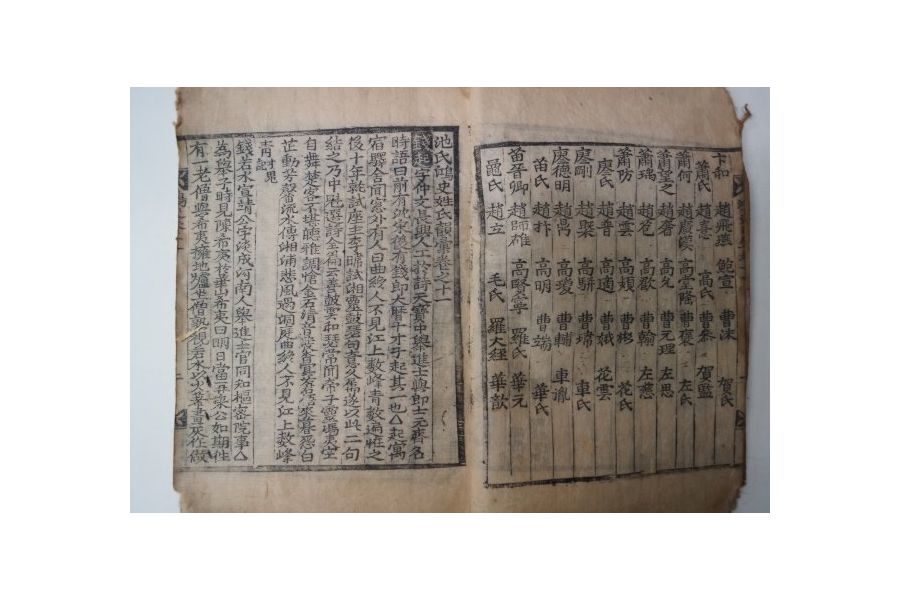 卞和 趙飛燕 鮑宣 曹沫 賀氏
蕭氏 趙憙 高氏 曹參 賀監
蕭何 趙廣漢 高堂隆 曹褒 左氏
蕭望之 趙咨 高允 曹元理 左思
蕭瑀 趙苞 高歡 曹翰 左慈
蕭防 趙雲 高頻 曹彬 花氏
廖氏 趙普 高適 曹娥 花雲
廖剛 趙槩 高駢 車氏
廖德明 趙卨 高璦 曹輔 車胤
苗氏 趙抃 高明 曹端 華氏
苗晉卿 趙師雄 高賢寧 羅氏 華元
趙立 毛氏 羅大經 華歆
池氏鴻史姓氏韻彙卷之十一
錢起字仲文長興人工於詩天寶中擧進士與郎士元齊名
時語曰前有沈宋後有錢郎大曆十才子起其一也△起寓
宿驛舍聞窓外有人曰曲終人不見江上數峰靑數遍怪之
後十年就試座主李暐試湘靈鼓瑟句意久屬遂以此二句
結之乃中魁選詩全篇云善鼓雲和瑟常聞帝子靈馮夷空
自舞楚客不堪聽雅調悽金石淸音發杳冥蒼梧來暮怨白
芷動芳馨流水傳湘浦悲風過洞庭曲終人不見江上數峰
靑
錢若水宣靖公字淡成河南人擧進士官同知樞密院事△
爲擧子時見陳希夷於華山希夷曰明日當再來公如期往
有一老僧與希夷擁地爐坐僧熟視若水以火箸畫灰作做